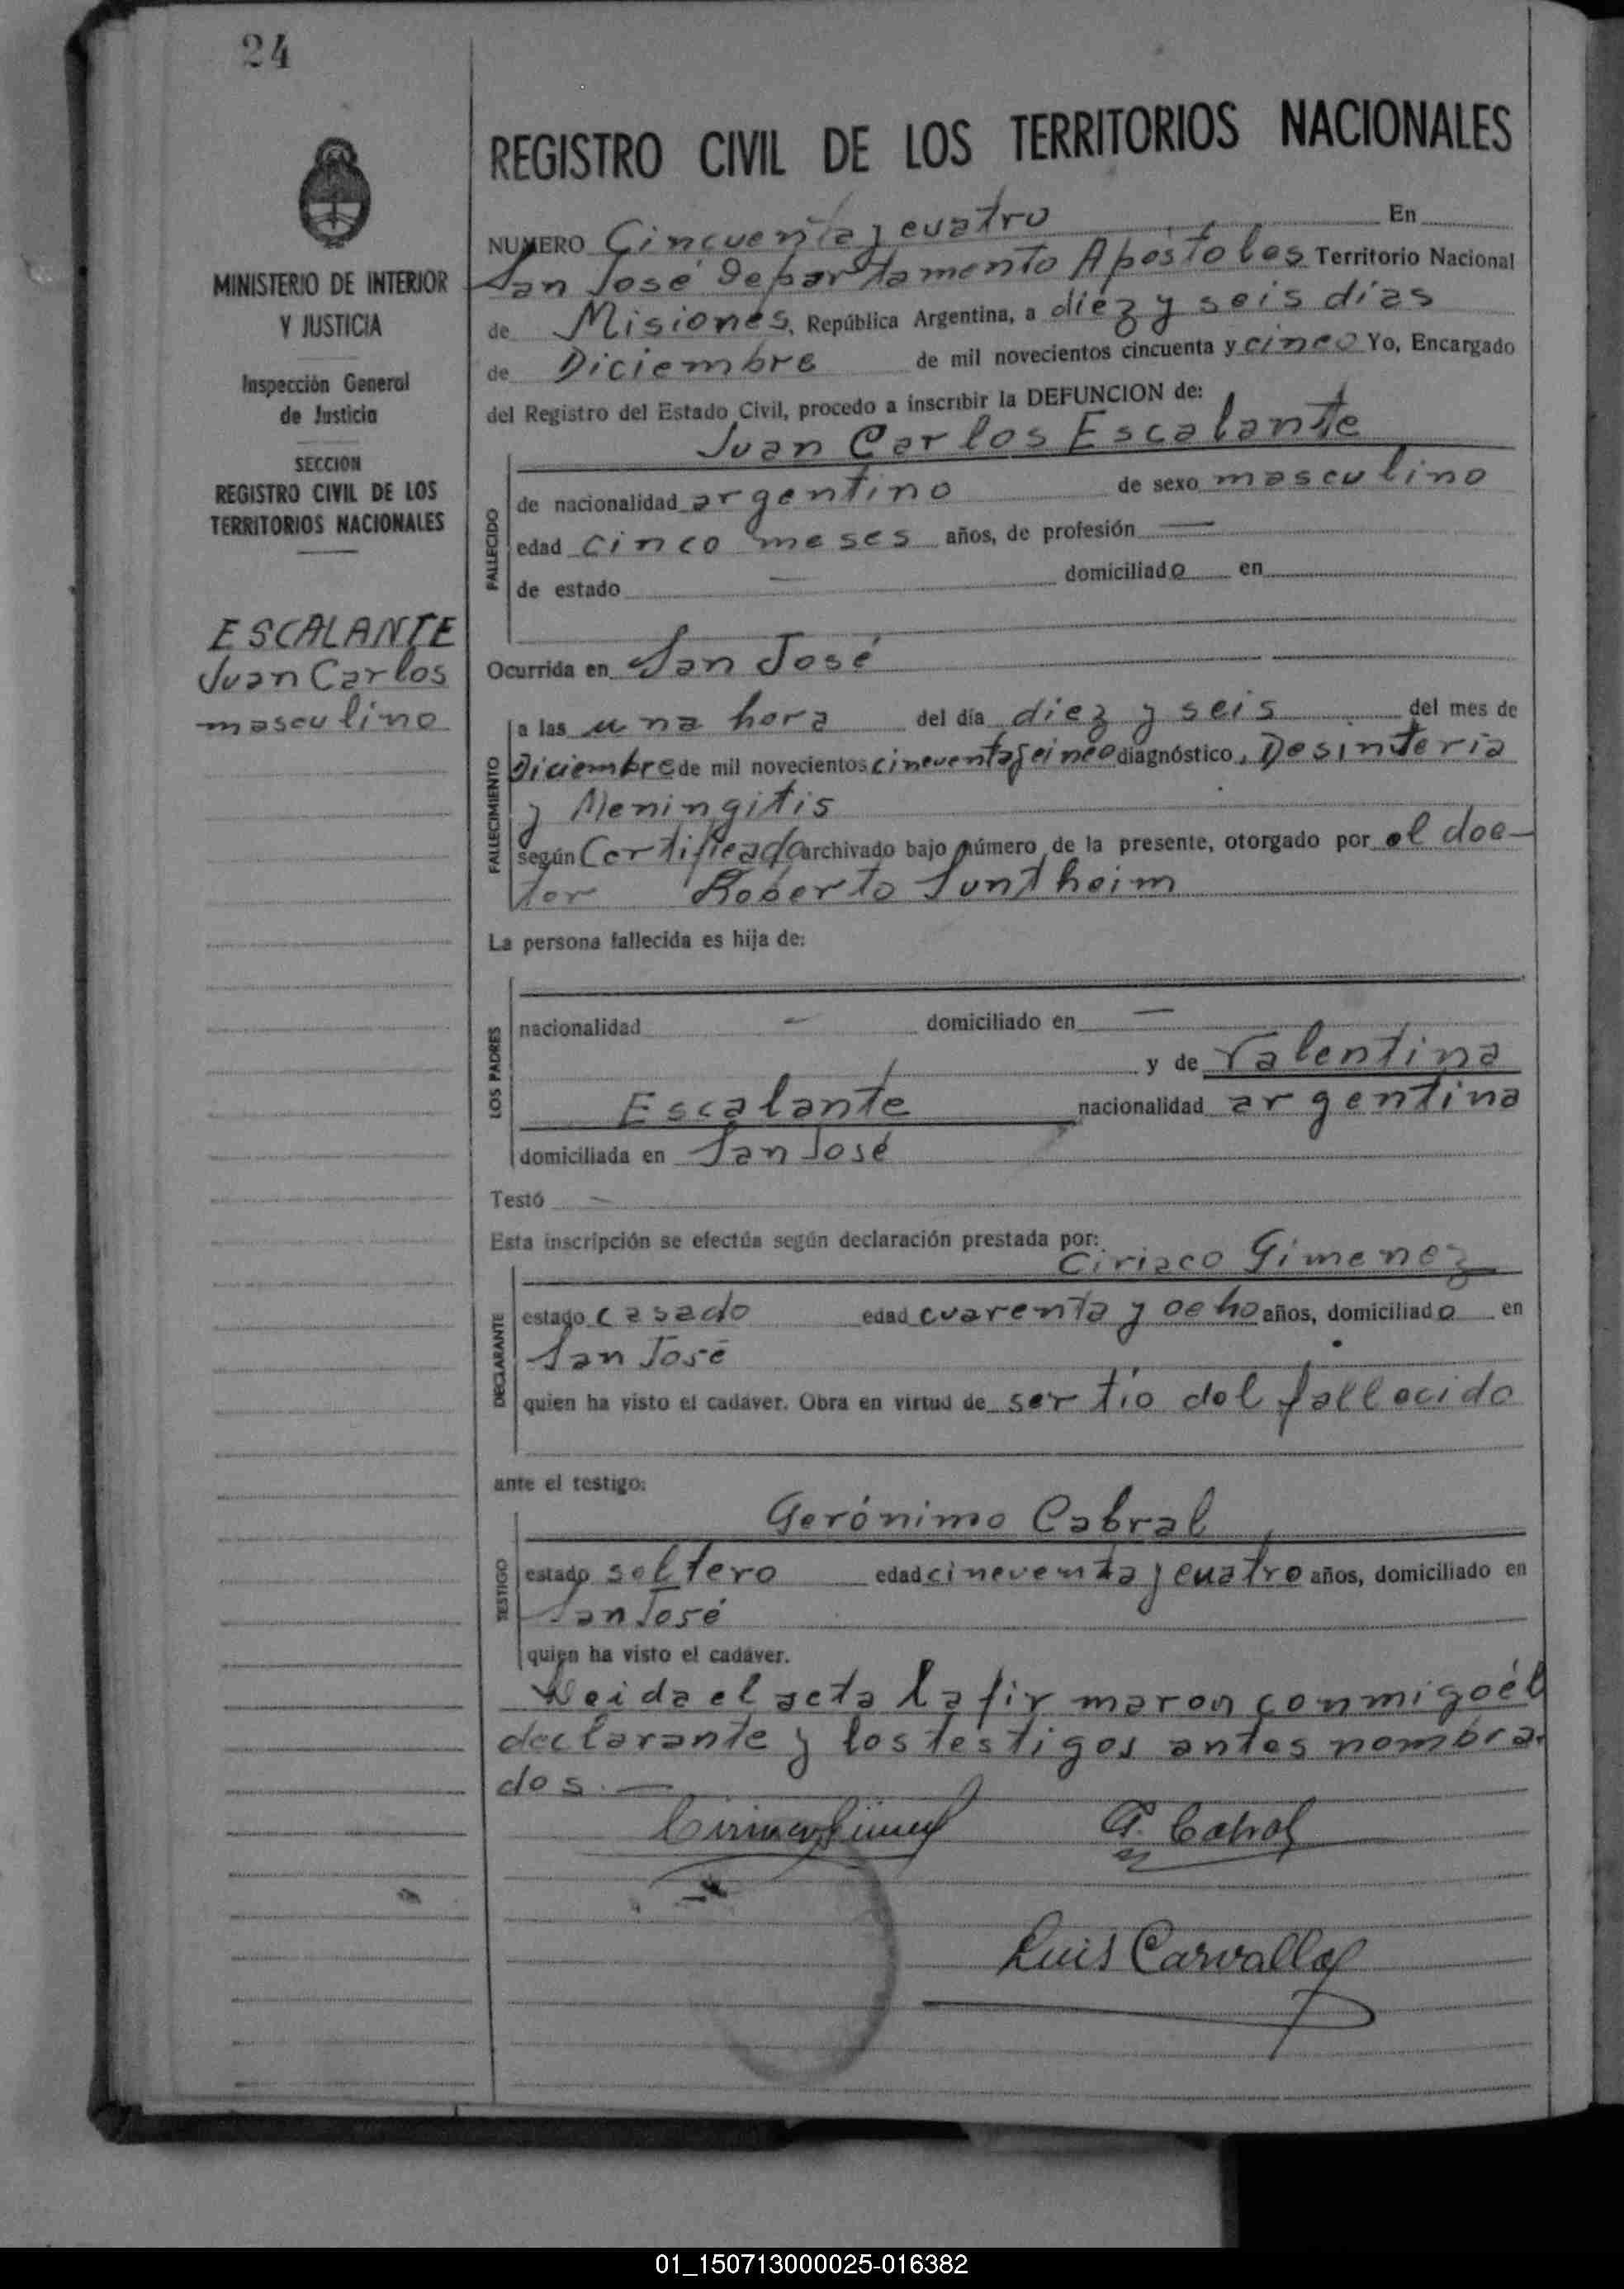 24
MINISTERIO DE INTERIOR
Y JUSTICIA
Inspección General
de Justicia
SECCION
REGISTRO CIVIL DE LOS
TERRITORIOS NACIONALES
ESCALANTE
Juan Carlos
masculino
REGISTRO CIVIL DE LOS TERRITORIOS NACIONALES
NUMERO Cincuenta y cuatro En
San José departamento Apóstoles Territorio Nacional
de Misiones, República Argentina, a diez y seis días
de Diciembre de mil novecientos cincuenta y cinco Yo, Encargado
del Registro del Estado Civil, procedo a inscribir la DEFUNCION de:
Juan Carlos Escalante
FALLECIDO
de nacionalidad argentino de sexo masculino
edad cinco meses años, de profesión —
de estado — domiciliado en
Ocurrida en San José
FALLECIMIENTO
a las una hora del día diez y seis del mes de
Diciembre de mil novecientos cincuenta y cinco diagnóstico, Desinteria
y Meningitis
según Certificado archivado bajo número de la presente, otorgado por el doc-
tor Roberto Suntheim
La persona fallecida es hija de:
LOS PADRES
nacionalidad — domiciliado en —
y de Valentina
Escalante nacionalidad argentina
domiciliada en San José
Testó —
Esta inscripción se efectúa según declaración prestada por:
Ciriaco Gimenez
DECLARANTE
estado casado edad cuarenta y ocho años, domiciliado en
San José
quien ha visto el cadáver. Obra en virtud de ser tío del fallecido
ante el testigo:
Gerónimo Cabral
TESTIGO
estado soltero edad cincuenta y cuatro años, domiciliado en
San José
quien ha visto el cadáver.
Leida el acta la firmaron conmigo él
declarante y los testigos antes nombra-
dos.—
G. Cabral
Luis Carvallo
01_150713000025-016382